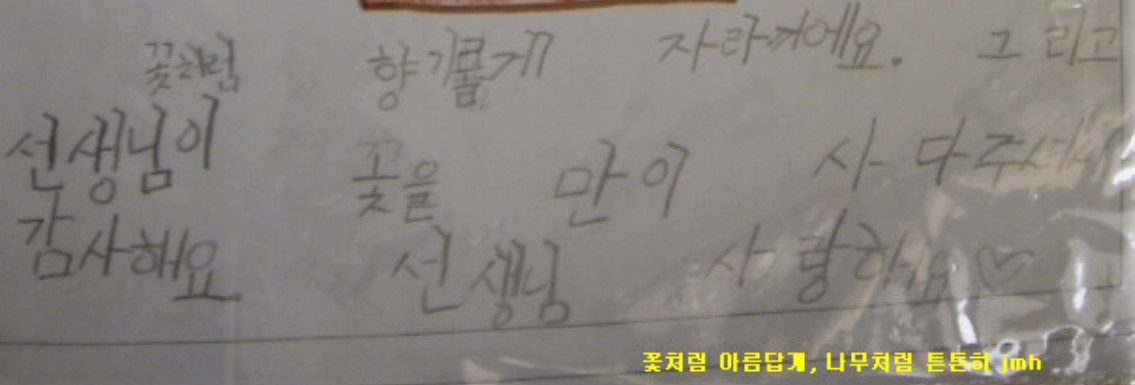 꽃처럼 향기롭게 자라꺼에요. 그리고
선생님이 꽃을 만이 사다주셔서
감사해요 선생님 사랑해요♡
꽃처럼 아름답게, 나무처럼 튼튼히 jmh